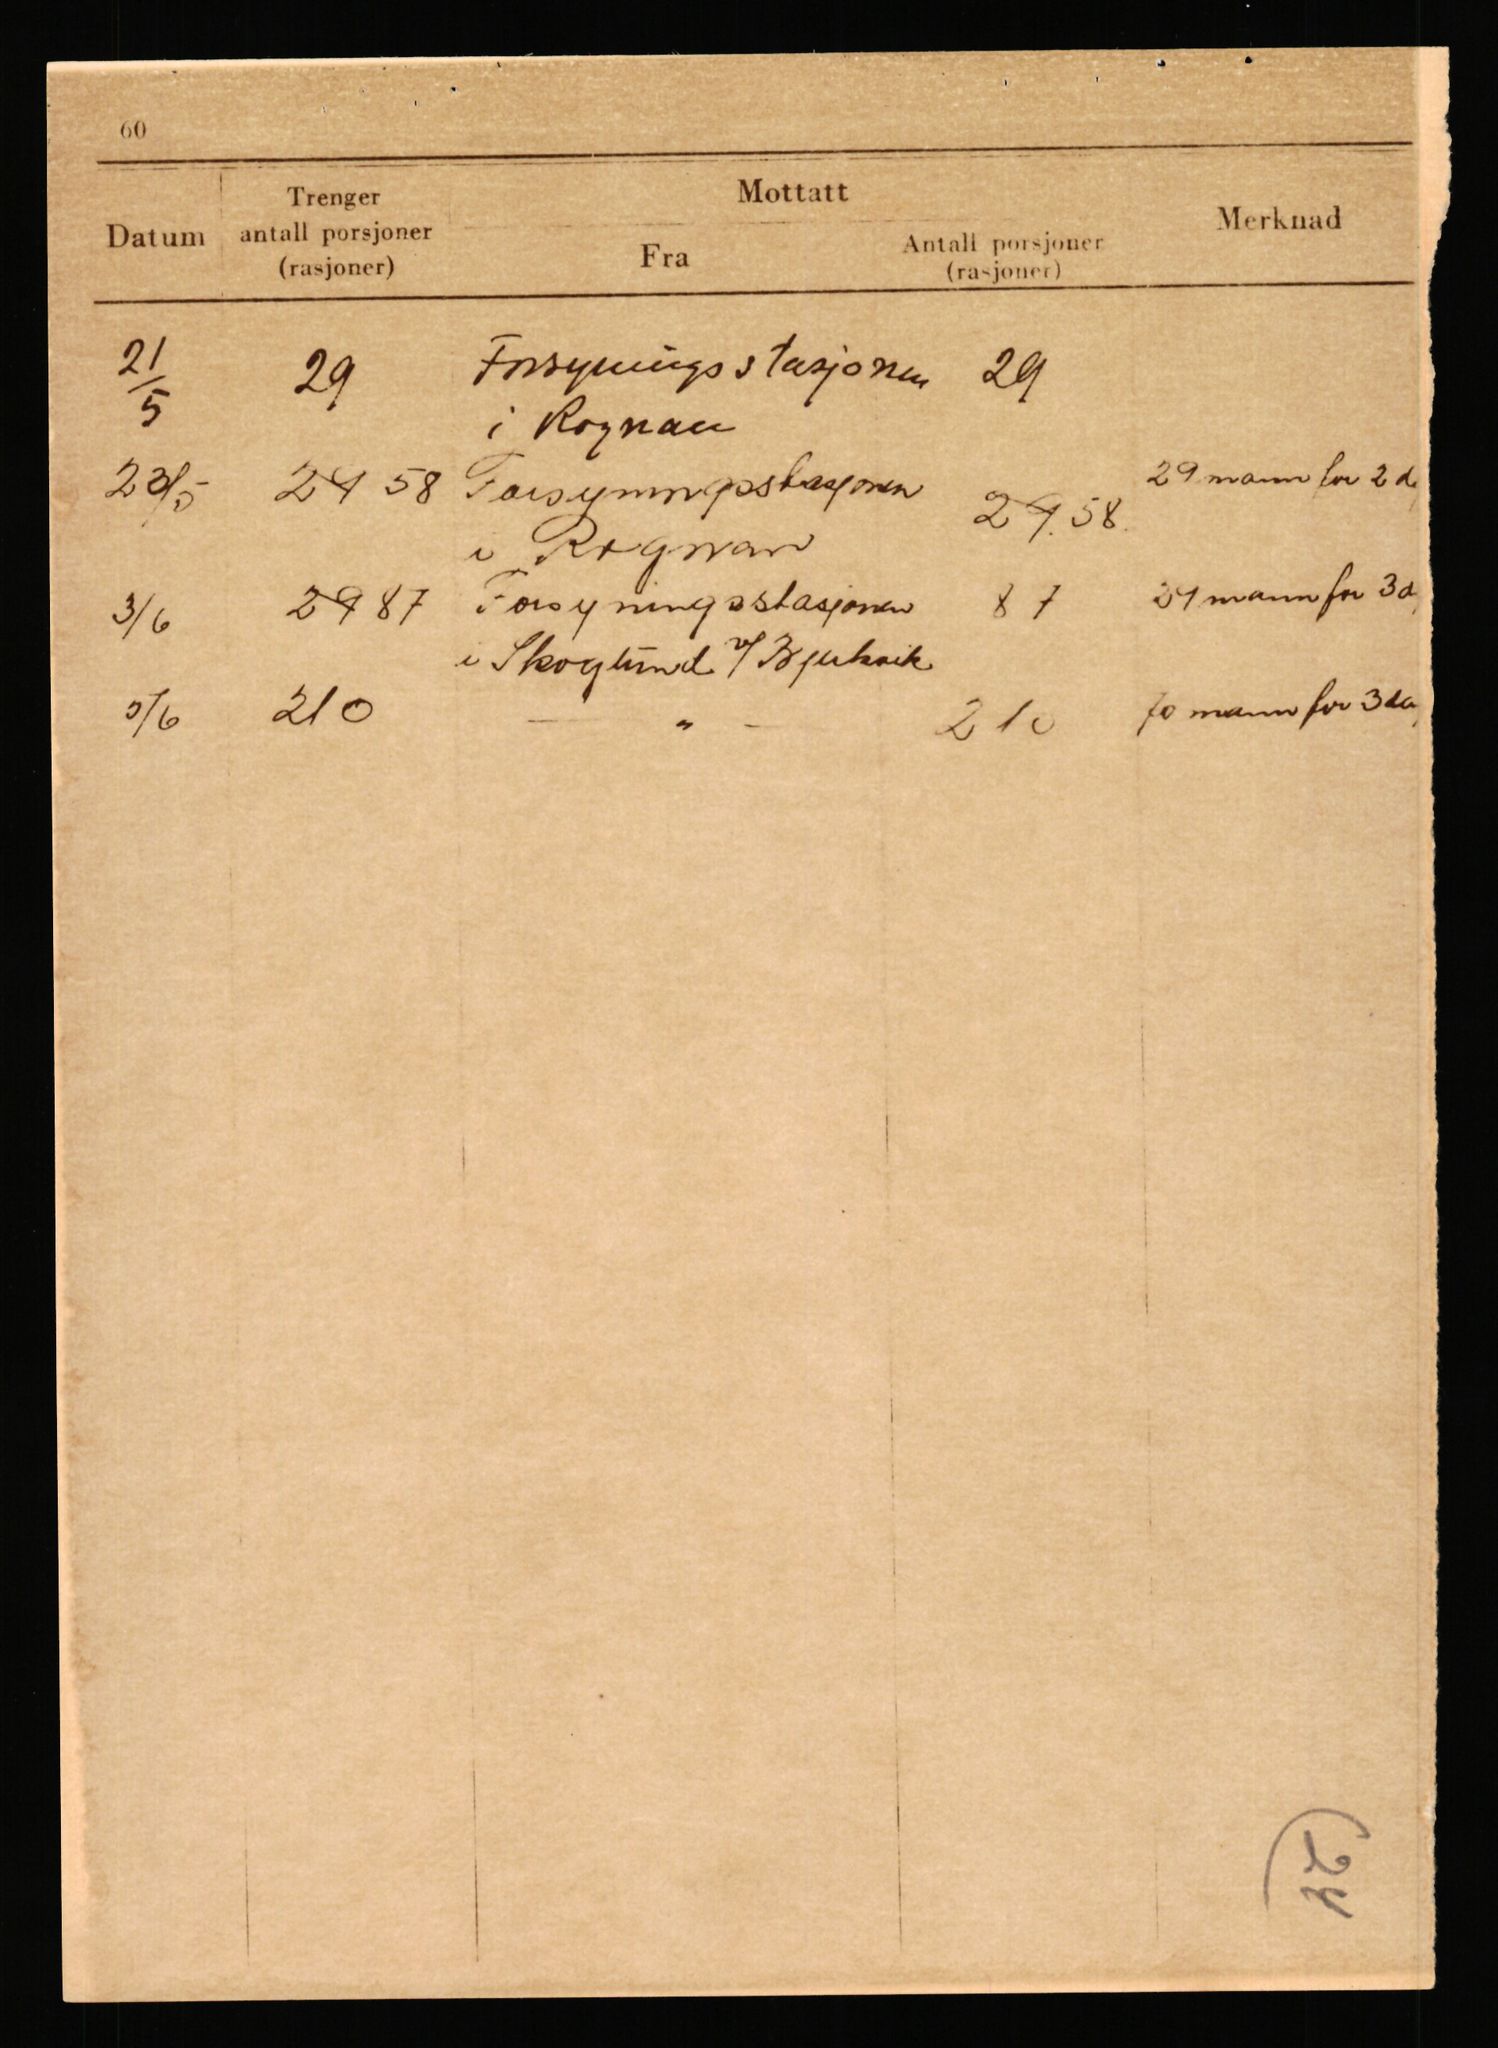 60
Datum Trenger antall porsjoner (rasjoner) Mottatt Fra Antall porsjoner (rasjoner) Merknad
21/5 29 Forsyningsstasjonen 29
i Rognan
23/5 29 58 Forsyningsstasjonen 29 58 29 mann for 2 d
i Rognan
3/6 29 87 Forsyningsstasjonen 87 29 mann for 3 d
i Skoglund v/ Bjerkvik
5/6 210 — „ — 210 70 mann for 3 da